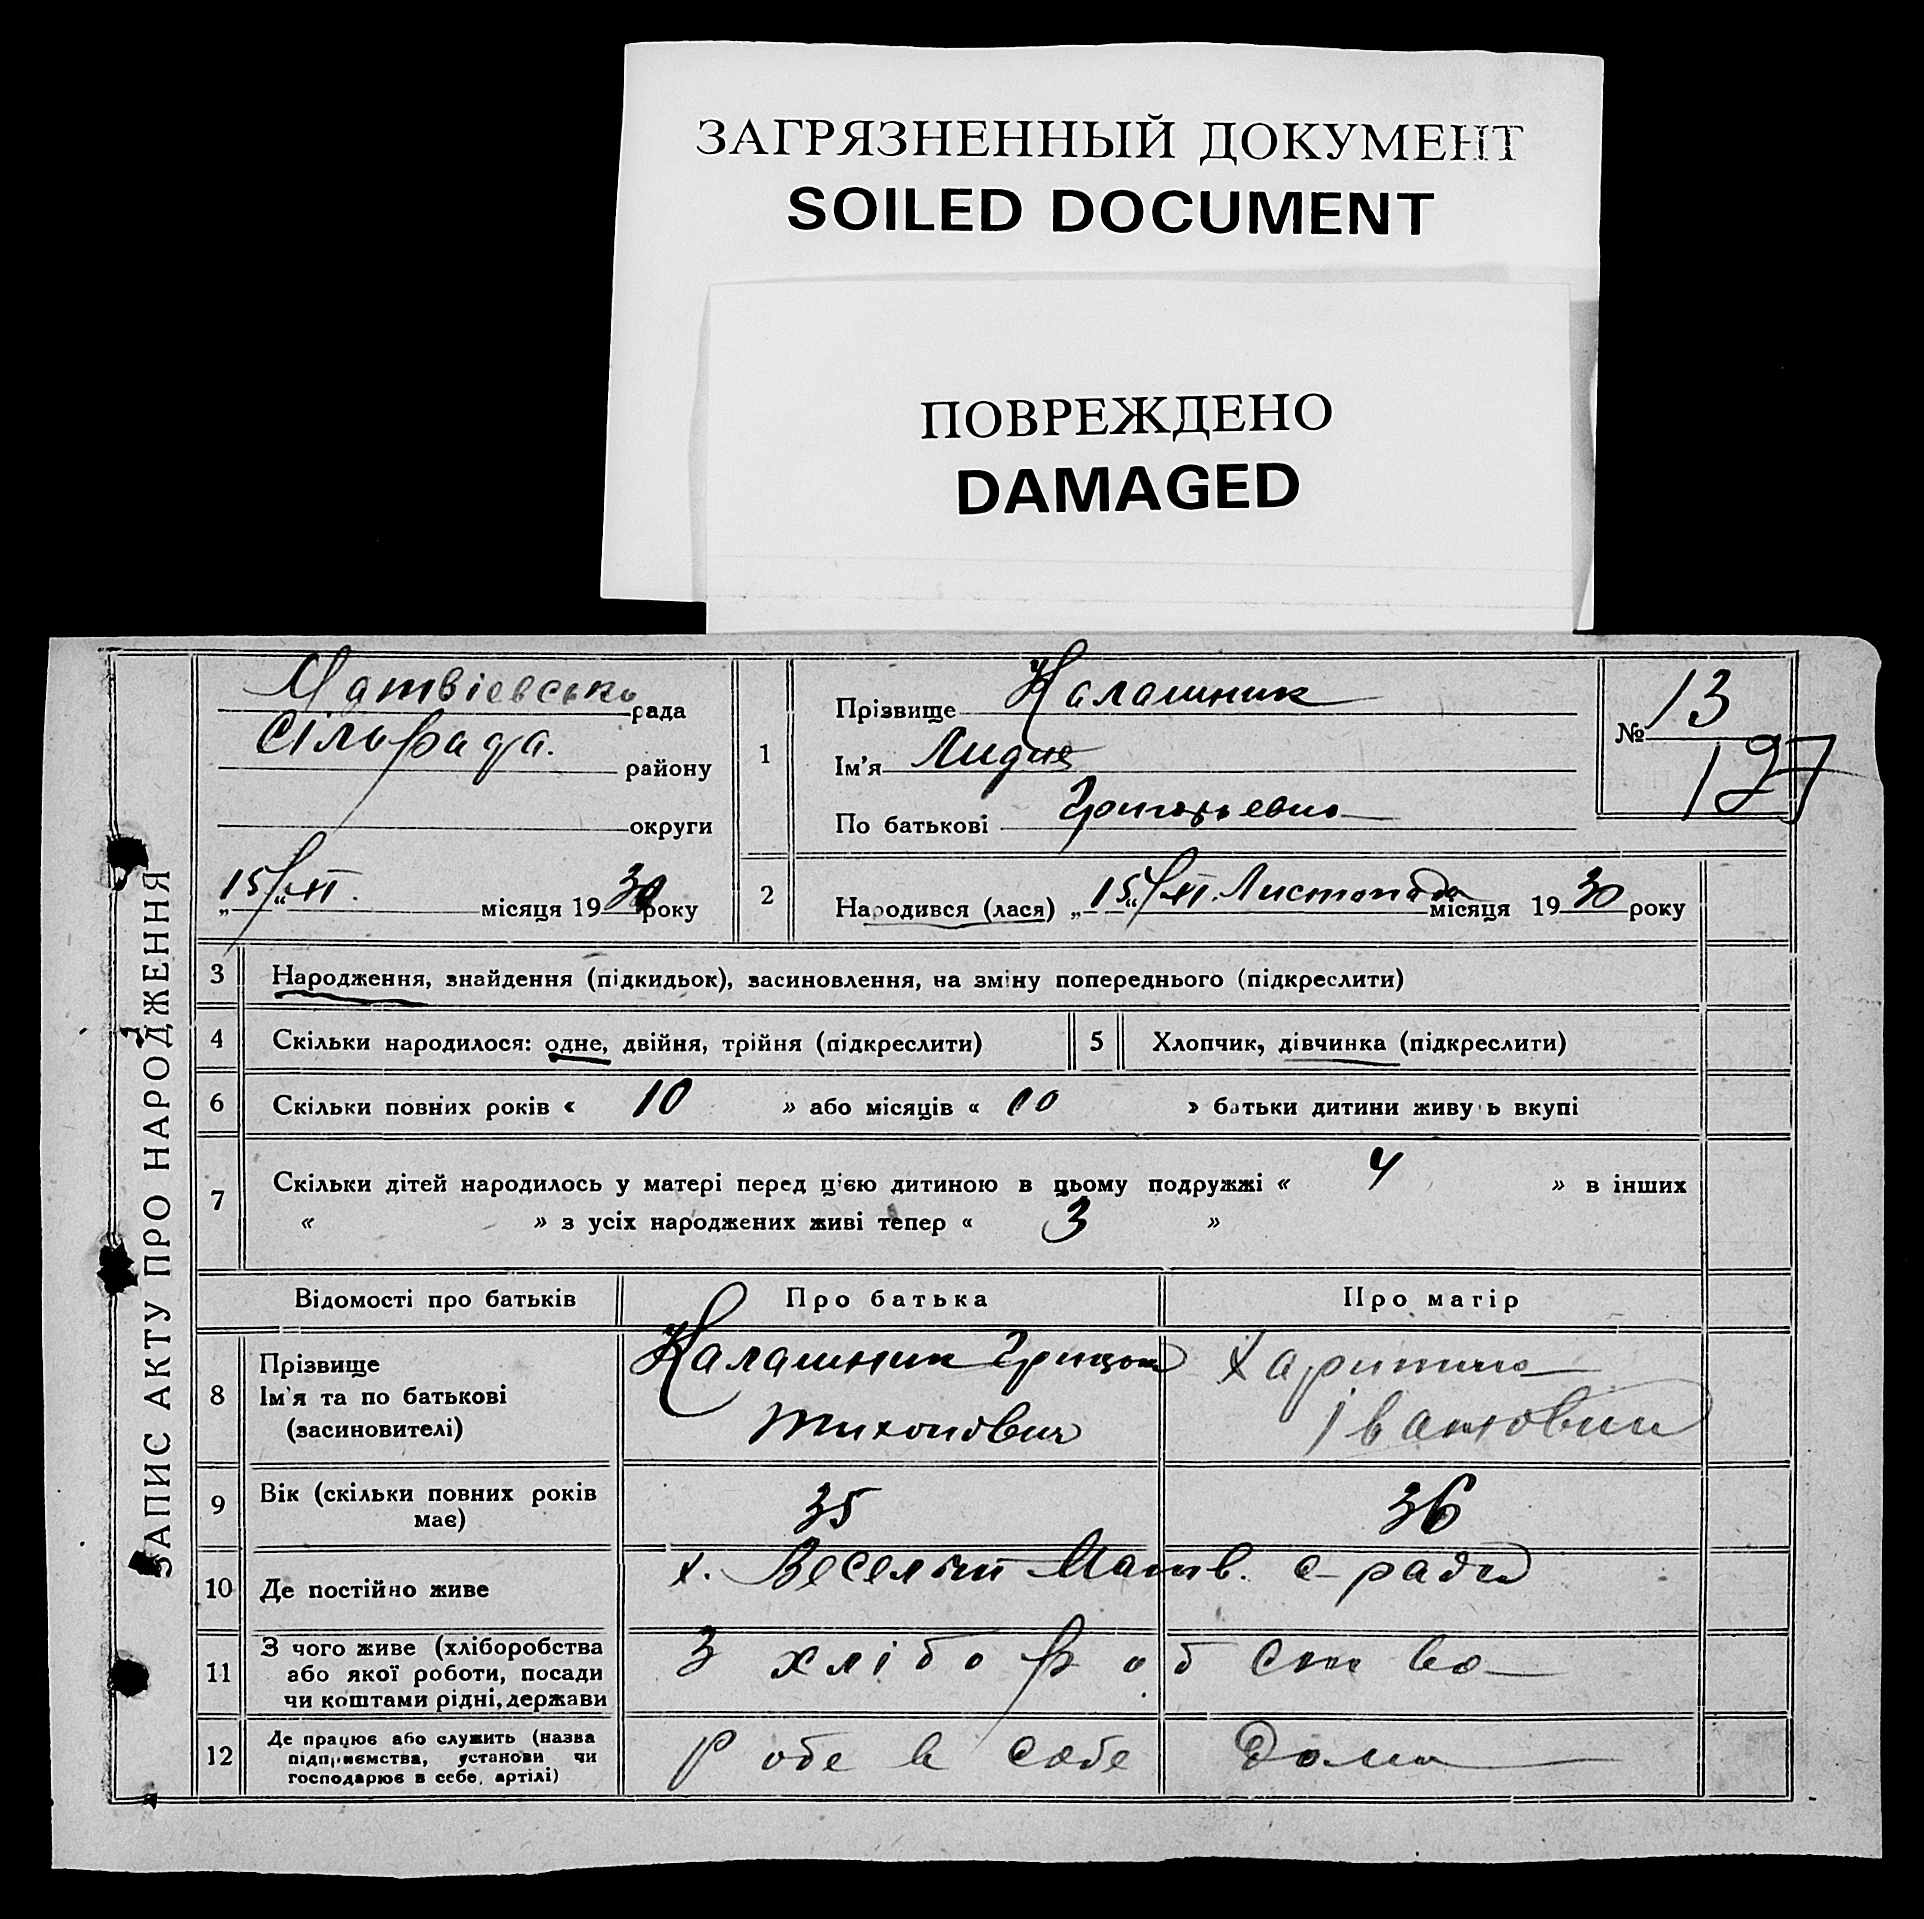 ЗАГРЯЗНЕННЫЙ ДОКУМЕНТ
SOILED DOCUMENT
ПОВРЕЖДЕНО
DAMAGED
ЗАПИС АКТУ ПРО НАРОДЖЕННЯ
Матвіевська рада
Сільрада. району
округи
"15/"XI. місяця 1930 року
1
Прізвище Калашник
Ім'я Лидия
По батькові Григорьевна
№ 13
127
2 Народився (лася) "15/"XI. Листопада місяця 1930 року
3 Народження, знайдення (підкидьок), засиновлення, на зміну попереднього (підкреслити)
4 Скільки народилося: одне, двійня, трійня (підкреслити) 5 Хлопчик, дівчинка (підкреслити)
6 Скільки повних років « 10 » або місяців « 00 » батьки дитини живуть вкупі
7 Скільки дітей народилось у матері перед ц'єю дитиною в цьому подружжі « 4 » в інших
« » з усіх народжених живі тепер « 3 »
Відомості про батьків Про батька Про матір
8 Прізвище
Ім'я та по батькові
(засиновителі)
Калашник Грицько
Тихонович
Харитина
Івановна
9 Вік (скільки повних років
має)
35 36
10 Де постійно живе х. Веселий Матв. с-ради
11 З чого живе (хліборобства
або якої роботи, посади
чи коштами рідні, держави
З хліборобства
12 Де працює або служить (назва
підприємства, установи чи
господарює в себе, артілі)
Робе в себе Дома